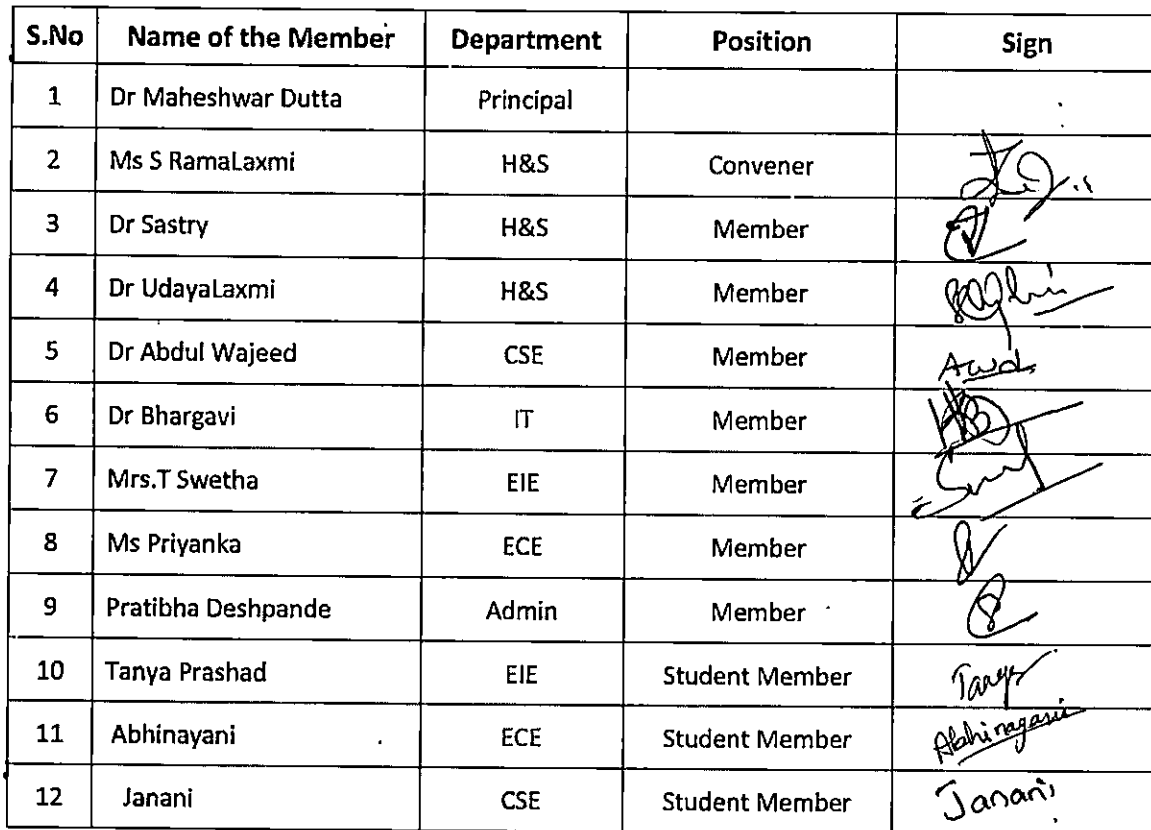 S.No Name of the Member Department Position Sign
1 Dr Maheshwar Dutta Principal
2 Ms S RamaLaxmi H&S Convener
3 Dr Sastry H&S Member
4 Dr UdayaLaxmi H&S Member
5 Dr Abdul Wajeed CSE Member Awd
6 Dr Bhargavi IT Member
7 Mrs.T Swetha EIE Member
8 Ms Priyanka ECE Member
9 Pratibha Deshpande Admin Member
10 Tanya Prashad EIE Student Member Tanya
11 Abhinayani ECE Student Member Abhinayani
12 Janani CSE Student Member Janani